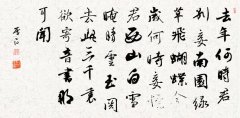 去年何時君
別妾南園綠
草飛蝴蝶今
歲何時妾憶
君西山白雪
暗秦雲玉關
去此三千里
欲寄音書那
可聞